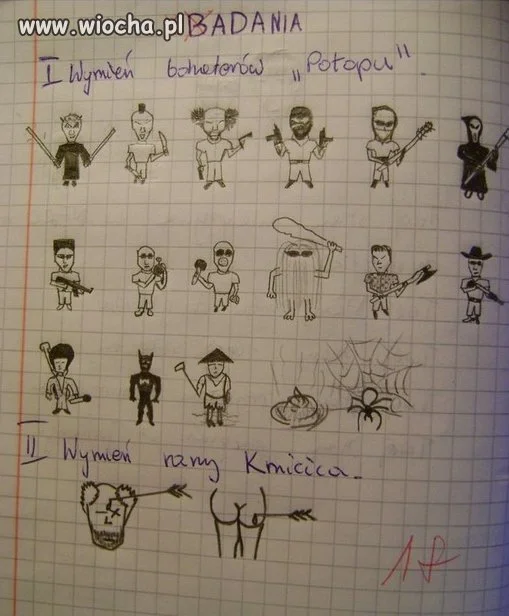 www.wiocha.pl
BADANIA
I Wymień bohaterów „Potopu".
II Wymień rany Kmicica.